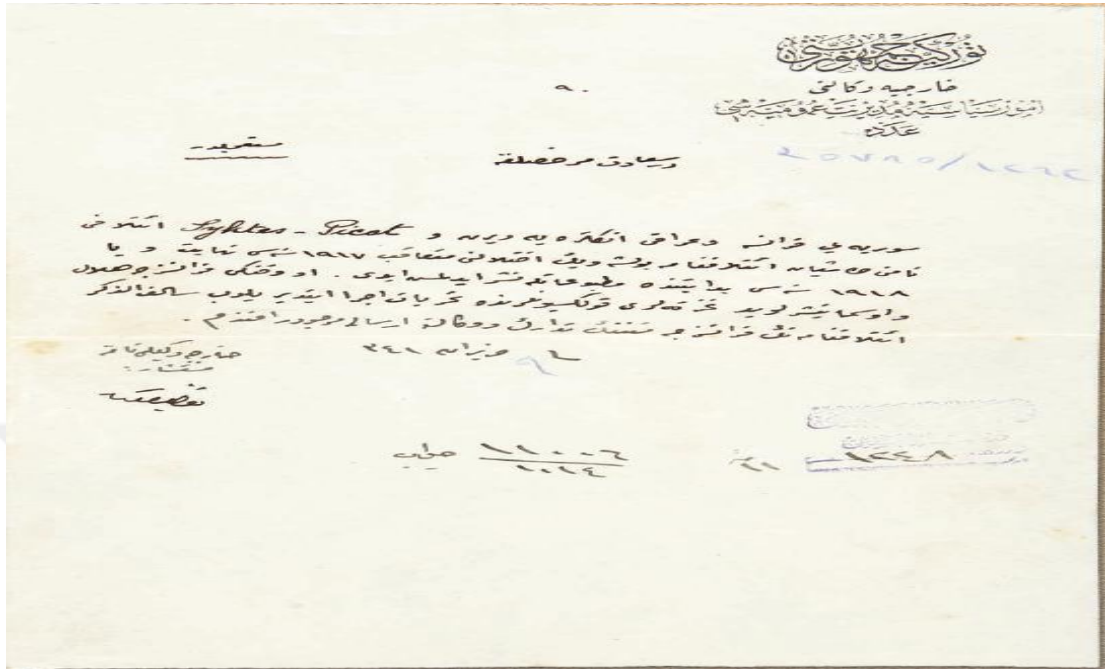 توركيه جمهوريتى
خارجيه وكالتى
امور سياسيه مديريت عموميه سى
عدد
٩٠
٤٥٧٨٥/١٢٦٢
مستعجلدر
درسعادت مرخصلغنه
سوريه يى فرانسه و عراقى انكلتره يه ويرن و Sykes - Picot ائتلافى
نامنى طاشيان ائتلافنامه بولشويك اختلالنى متعاقب ١٩١٧ سنه سى نهايتنه و يا
١٩١٨ سنه سى بدايتنده مطبوعاتله نشر ايدلمش ايدى . او وقتكى فرانسزجه هلال
غزته لرى قولكسيونلرنده تحرياتى اجرا ايتديريلوب سالف الذكر
ائتلافنامه نك فرانسزجه متننك تدارك و وكالته ارسالى مرجودر افندم .
٩ حزيران ٣٤١
خارجيه وكيلى نامنه
مستشار
جواب
١١٠٠٦
١٠١٤
١٢٤٨